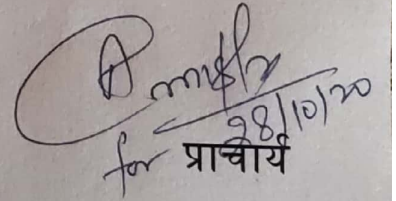 28/10/20
for प्राचार्य